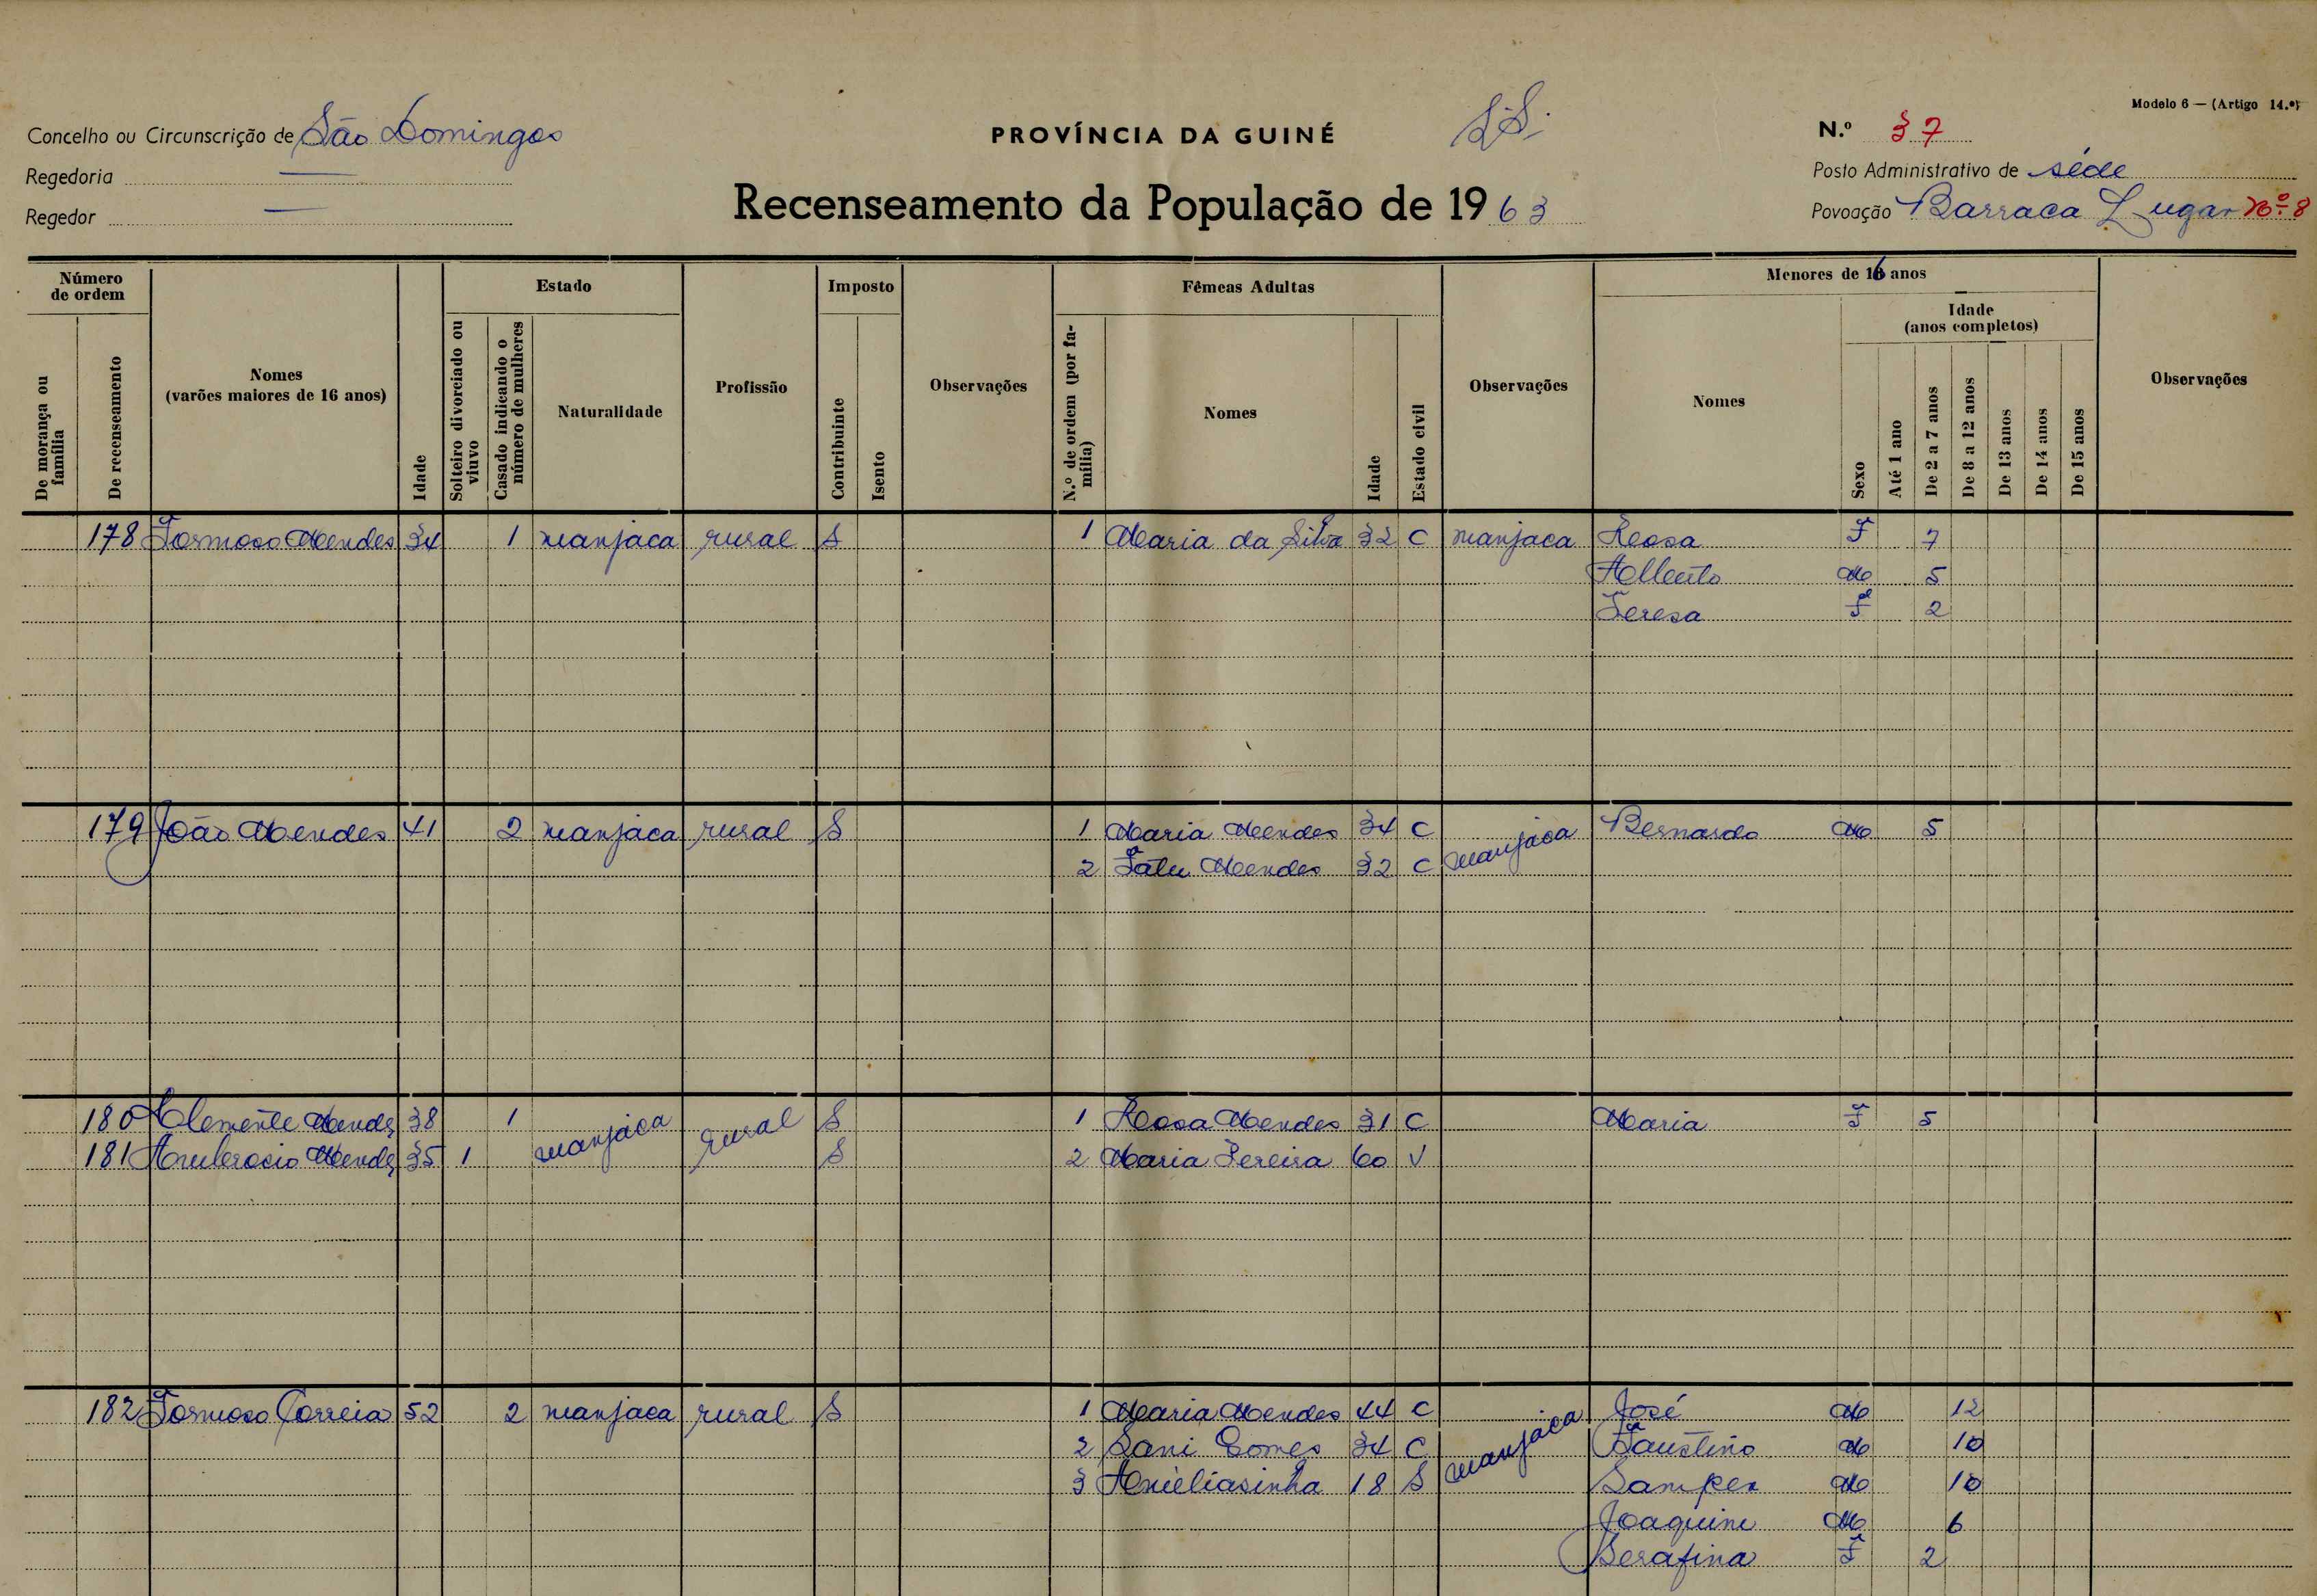 Modelo 6 — (Artigo 14.º)
Concelho ou Circunscrição de São Domingos
PROVÍNCIA DA GUINÉ
N.º 37
Regedoria —
Posto Administrativo de séde
Regedor —
Recenseamento da População de 1963
Povoação Barraca Lugar Nº 8
Número de ordem
De morança ou família
De recenseamento
Nomes
(varões maiores de 16 anos)
Idade
Estado
Solteiro divorciado ou viuvo
Casado indicando o número de mulheres
Naturalidade
Profissão
Imposto
Contribuinte
Isento
Observações
Fêmeas Adultas
N.º de ordem (por família)
Nomes
Idade
Estado civil
Observações
Menores de 16 anos
Nomes
Sexo
Idade
(anos completos)
Até 1 ano
De 2 a 7 anos
De 8 a 12 anos
De 13 anos
De 14 anos
De 15 anos
Observações
178 Formoso Mendes 34 1 manjaca rural S 1 Maria da Silva 32 C manjaca Rosa F 7
Alberto M 5
Teresa F 2
179 João Mendes 41 2 manjaca rural S 1 Maria Mendes 34 C manjaca Bernardo M 5
2 Fatu Mendes 32 C
180 Clemente Mendes 38 1 manjaca rural S 1 Rosa Mendes 31 C Maria F 5
181 Ambrosio Mendes 35 1 S 2 Maria Pereira 60 V
182 Formoso Correia 52 2 manjaca rural S 1 Maria Mendes 44 C manjaca José M 12
2 Sani Gomes 34 C Faustino M 10
3 Ameliasinha 18 S M 10
Joaquim M 6
Serafina F 2